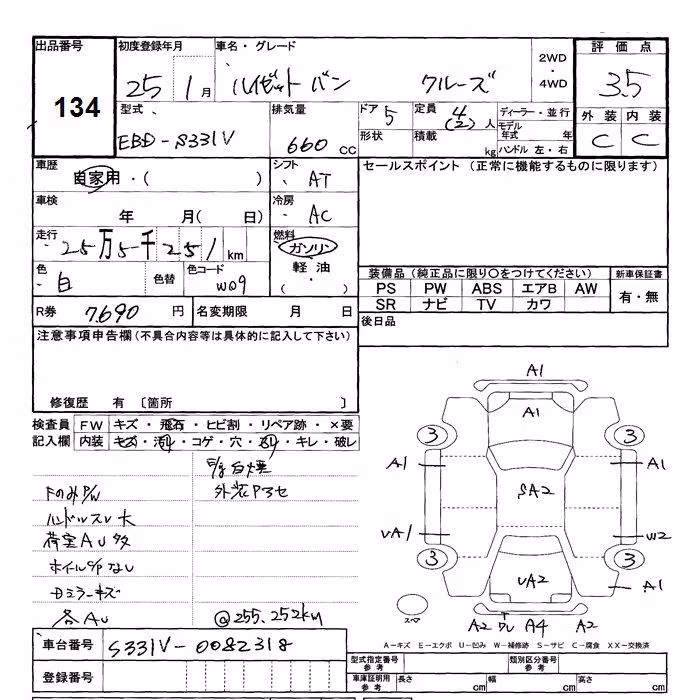 出品番号
134
初度登録年月
25 1月
車名・グレード
ハイゼットバン クルーズ
2WD
・
4WD
評価点
3.5
外装 内装
C C
型式
EBD-S331V
排気量
660 cc
ドア 5
形状
定員 4(2)人
積載 kg
ディーラー・並行
モデル年式 年
ハンドル 左・右
車歴
自家用・( )
シフト
AT
セールスポイント (正常に機能するものに限ります)
車検
年 月( 日)
冷房
AC
走行
25万5千251km
燃料
ガソリン
軽油
( )
色
白
色替
色コード
W09
装備品(純正品に限り〇をつけてください)
PS PW ABS エアB AW
SR ナビ TV カワ
新車保証書
有・無
R券 7,690円
名変期限 月 日
後日品
注意事項申告欄(不具合内容等は具体的に記入して下さい)
修復歴 有 〔箇所 〕
検査員記入欄
FW キズ・飛石・ヒビ割・リペア跡・×要
内装 キズ・汚レ・コゲ・穴・スリ・キレ・破レ
白焼
外装Pヌセ
FのみP/W
ハンドルスレ大
荷室AU多
ホイルC/Pなし
Dミラーキズ
各AU
@255,252km
車台番号 S331V-0082318
登録番号
A1
A1
3 3
A1 A1
SA2
UA1 W2
3 3
UA2 A1
スペア
A2 A4 A2
A-キズ E-エクボ U-凹み W-補修跡 S-サビ C-腐食 XX-交換済
型式指定番号 参考
類別区分番号 参考
車庫証明用 参考
長さ cm 幅 cm 高さ cm